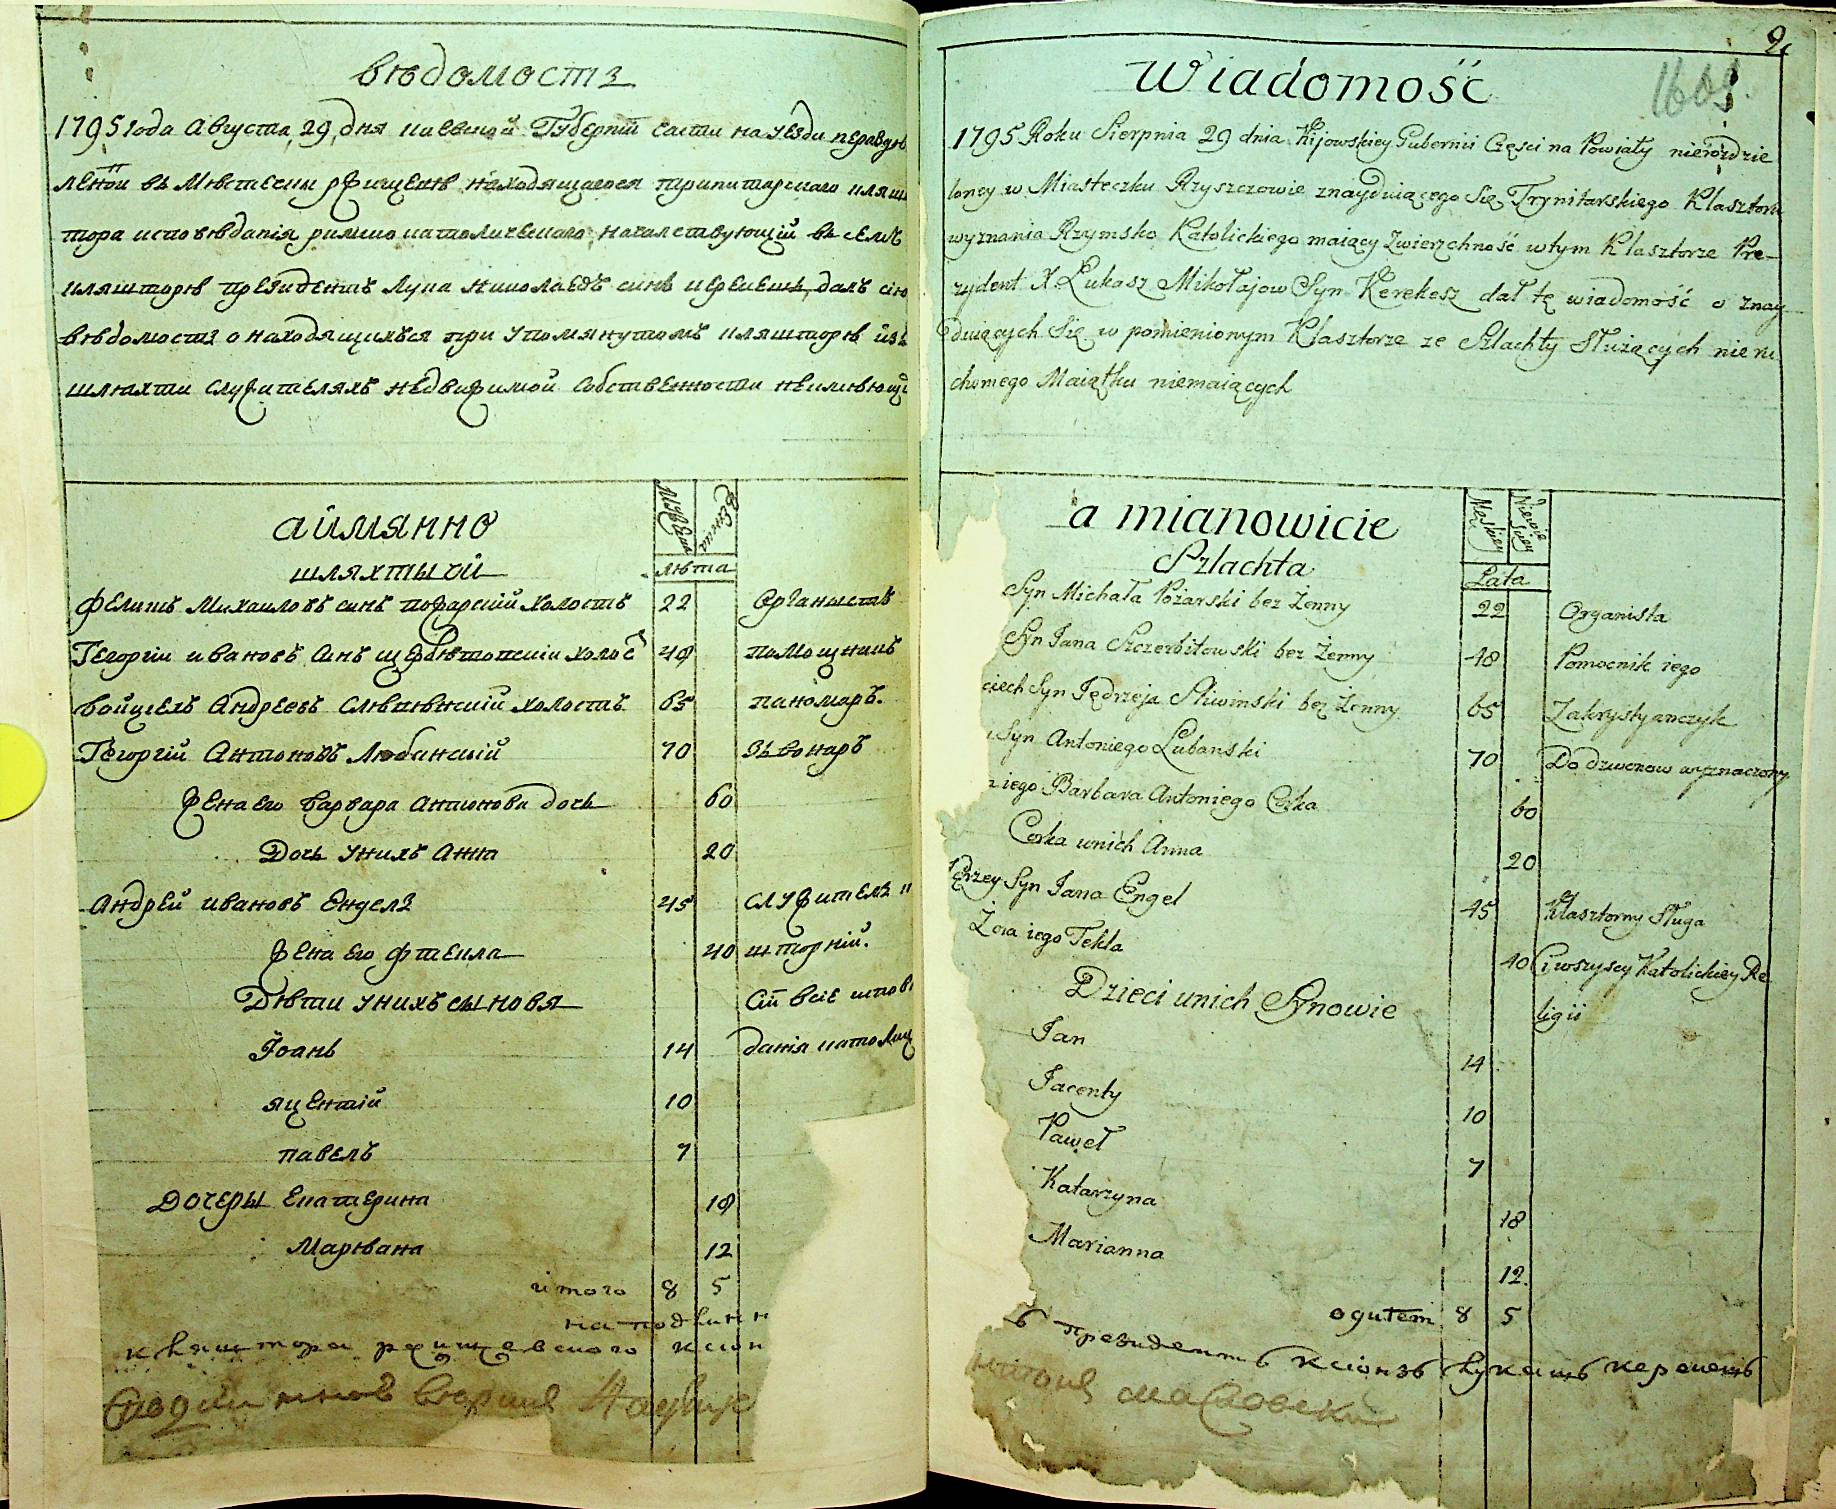 вѣдомость
1795 года Августа 29, дня киевской Губерніи части на уезди нераздѣ
леной въ Мѣстечки ржищевѣ находящагося тринитарскаго кляш
тора исповѣданія римско католическаго началствующій въ семъ
кляшторѣ президентъ Лука николаевъ синъ керекешъ, далъ сію
вѣдомость о находящихъся при упомянутомъ кляшторѣ изъ
шляхти служителяхъ недвижимой собственности неимѣющи
аймянно
Мужеска
Женска
шляхтычи
лѣта
феликъ Михаиловъ синъ пожарскій холостъ 22 Органыстъ
Георгіи ивановъ синъ холос 48 помощникъ
войцехъ Андреевъ слѣвѣнскій холостъ 65 паномаръ.
Георгій Антоновъ Любанскій 70 звонаръ
жена его варвара антонова дочь 60
Дочь унихъ Анна 20
Андрей ивановъ Енделъ 45 служитель к
жена его фтекла 40 шторній.
Дѣти унихъ сыновя сіи всіе испов
Їоанъ 14 данія католиц
яцентій 10
павелъ 7
Дочеры Екатерина 18
Марѣана 12
итого 8 5
на подлин н
кляштора ржищевского ксіон
2
1609.
Wiadomość
1795 Roku Sierpnia 29 dnia Kijowskiey Gubernii Części na Powiaty nierozdzie
loney w Miasteczku Rzyszczowie znayduiącego Się Trynitarskiego Klasztoru
wyznania Rzymsko Katolickiego maiący Zwierzchność wtym Klasztorze Pre-
zydent X. Łukasz Mikołajow Syn Kerekesz dał tę wiadomość o znay
duiących Się w pomienionym Klasztorze ze Szlachty Służących nieru
chomego Maiątku niemaiących
a mianowicie
Męskiey
Niewie
ściey
Szlachta
Lata
Syn Michała Pożarski bez Żenny 22 Organista
Syn Jana Szczerbitowski bez Żenny 48 Pomocnik iego
ciech Syn Jędrzeja Sliwinski bez Żenny 65 Zakrystyanczyk
Syn Antoniego Lubanski 70 Do dzwonow wyznaczony
iego Barbara Antoniego Corka 60
Corka unich Anna 20
drzey Syn Jana Engel 45 Klasztorny Sługa
Żona iego Tekla 40 Ci wszyscy Katolickiey Re
Dzieci unich Synowie ligii
Jan 14
Jacenty 10
Paweł 7
Katarzyna 18
Marianna 12.
ogułem 8 5
президентъ ксіонзъ лукашъ керекешъ